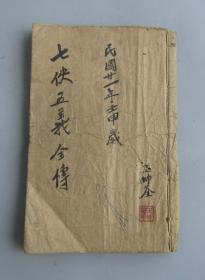 民國廿一年壬申歲
七俠五義全傳